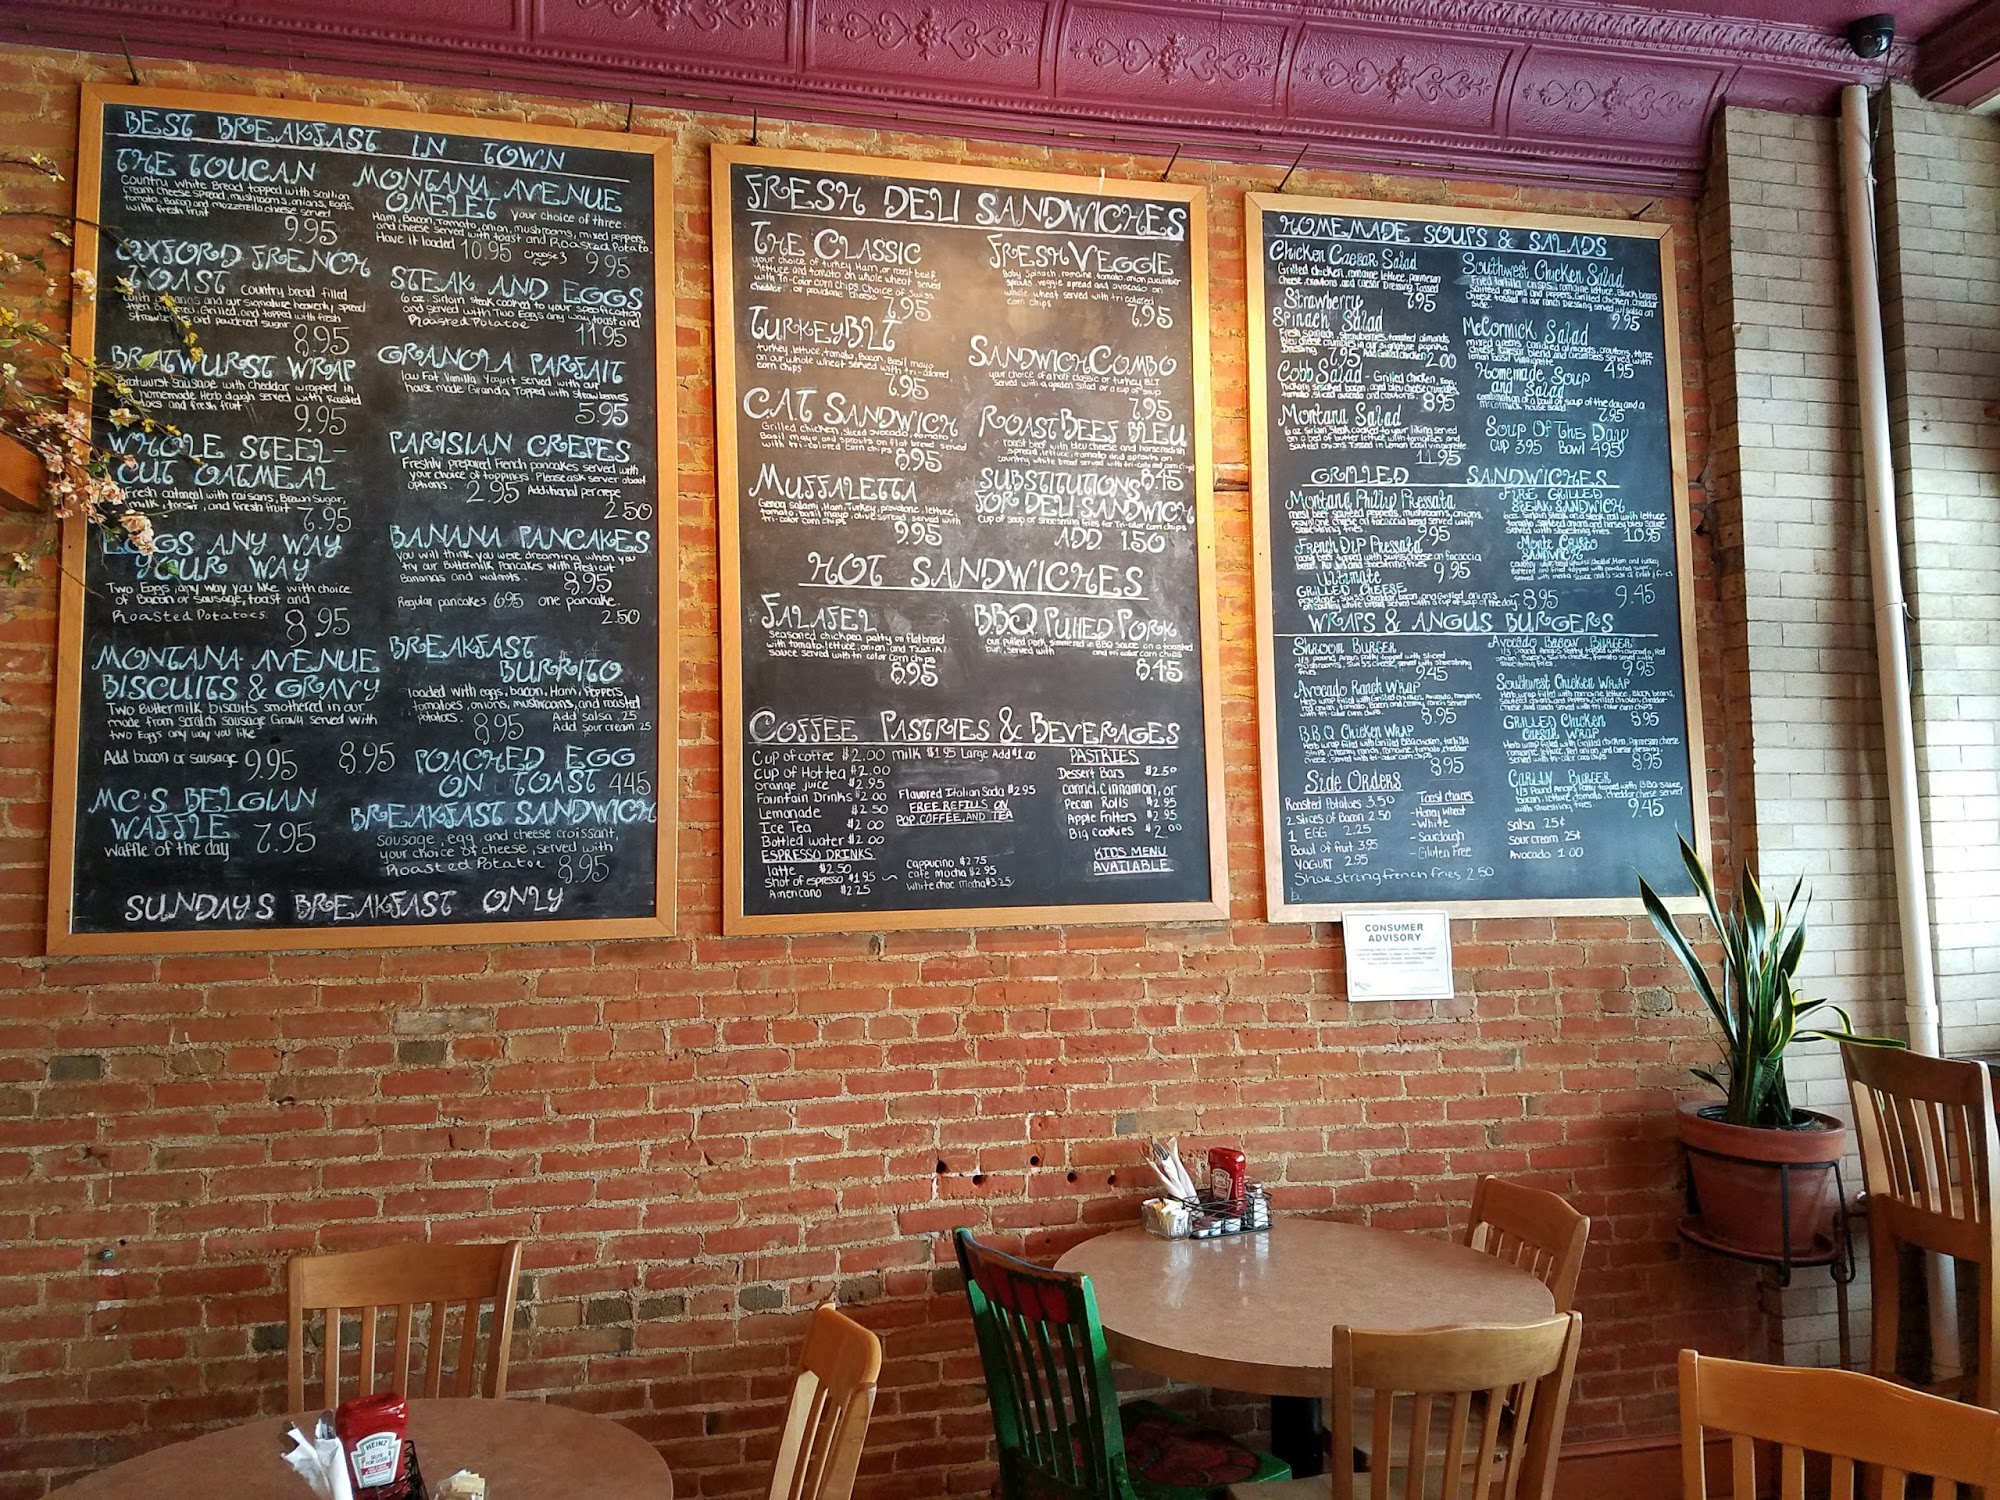 BEST BREAKFAST IN TOWN
THE TOUCAN
Country white Bread topped with
cream cheese spread, mushrooms, onions, Eggs,
tomato, Bacon and mozzerella cheese served
with fresh fruit
9.95
OXFORD FRENCH
TOAST country bread filled
with bananas and our signature
then Battered, Grilled, and topped with fresh
strawberries and powdered sugar
8.95
BRATWURST WRAP
Bratwurst Sausage with cheddar wrapped in
homemade Herb dough served with Roasted
Potatoes and fresh fruit
9.95
WHOLE STEEL-
CUT OATMEAL
Fresh oatmeal with raisans, Brown Sugar,
milk, toast, and fresh fruit 7.95
EGGS ANY WAY
YOUR WAY
Two Eggs any way you like with choice
of Bacon or sausage, toast and
Roasted Potatoes.
8.95
MONTANA AVENUE
BISCUITS & GRAVY
Two Buttermilk biscuits smothered in our
made from scratch sausage Gravy served with
two Eggs any way you like
8.95
Add bacon or sausage 9.95
MC'S BELGIAN
WAFFLE 7.95
Waffle of the day
MONTANA AVENUE
OMELET your choice of three
Ham, Bacon, Tomato, onion, mushrooms, mixed peppers,
and cheese served with toast and Roasted Potato.
Have it loaded 10.95 choose 3 for 9.95
STEAK AND EGGS
6 oz. Sirloin steak cooked to your specification
and served with Two Eggs any way, toast and
Roasted Potatoe
11.95
GRANOLA PARFAIT
low Fat Vanilla Yogurt served with our
house made Granola Topped with strawberries
5.95
PARISIAN CREPES
Freshly prepared French pancakes served with
your choice of toppings. Please ask server about
options. 2.95 Additional per crepe
2.50
BANANA PANCAKES
you will think you were dreaming when you
try our Buttermilk Pancakes with Fresh cut
Bananas and walnuts. 8.95
Regular pancakes 6.95 one pancake.
2.50
BREAKFAST
BURRITO
loaded with eggs, bacon, Ham, Peppers,
tomatoes, onions, mushrooms, and roasted
potatoes. 8.95 Add salsa .25
Add sour cream .25
POACHED EGG
ON TOAST 4.45
BREAKFAST SANDWICH
Sausage, egg, and cheese croissant,
your choice of cheese, served with
Roasted Potatoe 8.95
SUNDAYS BREAKFAST ONLY
FRESH DELI SANDWICHES
THE CLASSIC
your choice of turkey, Ham, or roast beef,
lettuce and tomato on whole wheat served
with Tri-Color corn chips Choice of Swiss,
cheddar or provolone cheese
7.95
TURKEY BLT
turkey, lettuce, tomato, Bacon, Basil mayo
on our whole wheat served with tri-colored
corn chips
6.95
C.A.T SANDWICH
Grilled chicken, sliced avocado, tomato,
Basil mayo and sprouts on flat bread served
with tri-colored corn chips 8.95
MUFFALETTA
Genoa salami, Ham, Turkey, provolone, lettuce,
tomato, basil mayo olive spread served with
tri-color corn chips
9.95
FRESH VEGGIE
Baby Spinach, romaine, tomato, cucumber
sprouts, veggie spread and avocado on
whole wheat served with tri colored
corn chips
7.95
SANDWICH COMBO
your choice of a half classic or turkey BLT
Served with a garden salad or a cup of soup
7.95
ROAST BEEF BLEU
roast beef with bleu cheese and horseradish
spread, lettuce, tomato and sprouts on
country white bread served with tri-color corn chips
8.45
SUBSTITUTIONS
FOR DELI SANDWICH
cup of soup or shoestring fries for Tri-color corn chips
ADD 1.50
HOT SANDWICHES
FALAFEL
Seasoned chickpea patty on flatbread
with tomato, lettuce, onion, and Tzaziki
sauce served with tri color corn chips
8.95
BBQ PULLED PORK
our pulled pork simmered in BBQ sauce on a toasted
bun, served with and tri color corn chips
8.45
COFFEE PASTRIES & BEVERAGES
Cup of coffee $2.00 milk $1.95 Large Add $1.00
Cup of Hot tea $2.00
Orange juice $2.95
Fountain Drinks $2.00
Lemonade $2.50
Ice Tea $2.00
Bottled water $2.00
Flavored Italian Soda $2.95
FREE REFILLS ON
POP, COFFEE, AND TEA
ESPRESSO DRINKS
latte $2.50
Shot of espresso $1.95
Americano $2.25
Cappucino $2.75
cafe mocha $2.95
White choc mocha $3.25
PASTRIES
Dessert Bars $2.50
Carmel, cinnamon, or
Pecan Rolls $2.95
Apple Fritters $2.95
Big cookies $2.00
KIDS MENU
AVAILABLE
HOMEMADE SOUPS & SALADS
Chicken Caesar Salad
Grilled chicken, romaine lettuce, parmesan
cheese, croutons and caesar Dressing Tossed
7.95
Strawberry
Spinach Salad
Fresh spinach, strawberries, toasted almonds,
bleu cheese crumbles in our signature paprika
Dressing 7.95 Add Grilled chicken 2.00
Cobb Salad - Grilled chicken, Egg,
hickory smoked bacon, and bleu cheese crumbles,
tomato, sliced avocado and croutons. 8.95
Montana Salad
6 oz sirloin steak cooked to your liking served
on a bed of butter lettuce with tomatoes, and
sauteed onions Tossed in Lemon Basil vinaigrette
11.95
Southwest Chicken Salad
Fried tortilla crisps, romaine lettuce, Black beans
sauteed onions and peppers, Grilled chicken, cheddar
cheese tossed in our ranch Dressing served w/ salsa on
side. 9.95
McCormick Salad
mixed greens, candied almonds, croutons, three
cheese caesar blend and cucumbers served with
lemon basil vinaigrette
4.95
Homemade Soup
and Salad
combination of a bowl of soup of the day and a
McCormick house salad
7.95
Soup Of The Day
cup 3.95 bowl 4.95
GRILLED SANDWICHES
Montana Philly Pressata
roast beef, sauteed peppers, mushrooms, onions,
provolone cheese on foccacia bread served with
shoestring fries. 9.95
French Dip Pressata
roast beef topped with swiss cheese on foccacia
bread, Au Jus and shoestring fries
9.95
Ultimate
GRILLED CHEESE
provolone, swiss, cheddar, bacon, and Grilled onions
on country white bread served with a cup of soup of the day - 8.95
FIRE GRILLED
STEAK SANDWICH
6oz. Sirloin steak and steak roll with lettuce,
tomato, sauteed onions and horsey bleu sauce
served with shoestring fries. 10.95
Monte Cristo
SANDWICH
Country white bread w/swiss, cheddar, Ham, and turkey
Battered and fried topped with powdered sugar,
served with side of fruit / fries
9.45
WRAPS & ANGUS BURGERS
Shroom BURGER
1/3 pound Angus patty topped with sliced
mushrooms, swiss cheese, served with shoestring
fries 9.45
Avocado Ranch WRAP
Herb wrap filled with Grilled chicken, Avocado, romaine,
red onion, tomato, bacon and creamy ranch served
with tri-color corn chips. 8.95
B.B.Q Chicken WRAP
Herb wrap filled with Grilled BBQ chicken, tortilla
strips, creamy ranch, romaine, tomato, cheddar
cheese, served with tri-color corn chips
8.95
Avocado Bacon BURGER
1/3 pound Angus Patty topped with avocado, red
onion, Bacon, swiss cheese, tomato served with
shoestring fries. 9.95
Southwest Chicken WRAP
Herb wrap filled with romaine lettuce, Black beans,
sauteed onions and peppers, Grilled chicken, cheddar
cheese and ranch served with tri-color corn chips
8.95
GRILLED Chicken
Caesar WRAP
Herb wrap filled with Grilled chicken, Parmesan cheese
romaine lettuce, Red onion, and Caesar dressing,
served with tri-color corn chips 8.95
CARLIN BURGER
1/3 Pound Angus Patty topped with BBQ sauce,
bacon, lettuce, tomato, cheddar cheese served
with shoestring fries. 9.45
Side Orders
Roasted Potatoes 3.50
2 slices of Bacon 2.50
1 EGG 2.25
Bowl of fruit 3.95
YOGURT 2.95
Shoestring french fries 2.50
Toast choices
- Honey Wheat
- White
- Sourdough
- Gluten Free
Salsa .25¢
Sour cream .25¢
Avocado 1.00
CONSUMER
ADVISORY
HEINZ